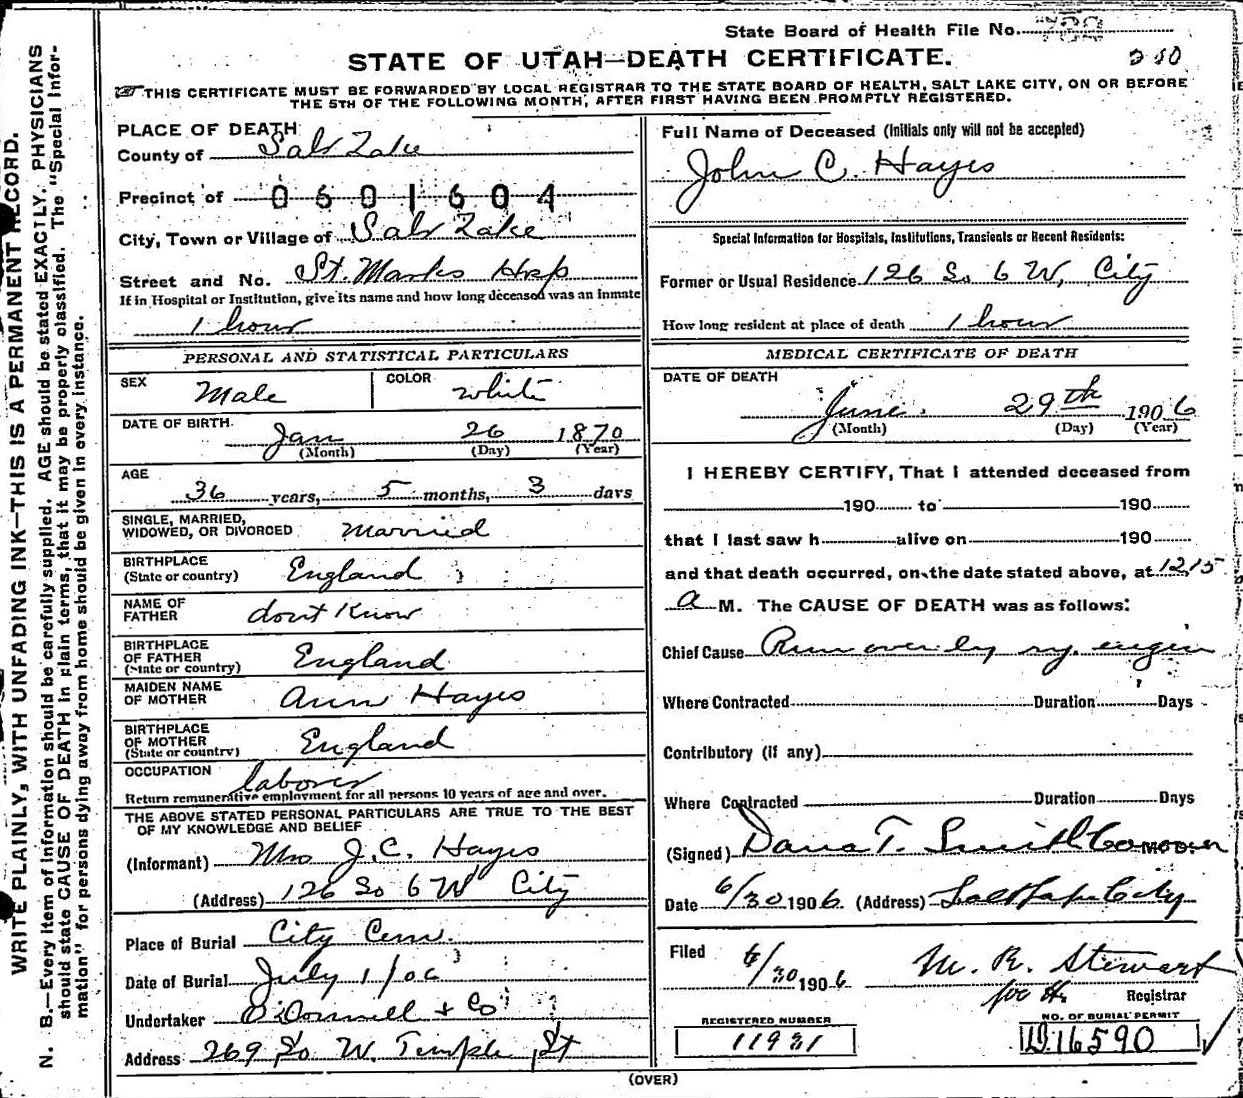 State Board of Health File No.
STATE OF UTAH—DEATH CERTIFICATE.
THIS CERTIFICATE MUST BE FORWARDED BY LOCAL REGISTRAR TO THE STATE BOARD OF HEALTH, SALT LAKE CITY, ON OR BEFORE
THE 5TH OF THE FOLLOWING MONTH, AFTER FIRST HAVING BEEN PROMPTLY REGISTERED.
WRITE PLAINLY, WITH UNFADING INK—THIS IS A PERMANENT RECORD.
N. B.—Every item of information should be carefully supplied. AGE should be stated EXACTLY. PHYSICIANS
should state CAUSE OF DEATH in plain terms, that it may be properly classified. The "Special Infor-
mation" for persons dying away from home should be given in every instance.
PLACE OF DEATH
County of Salt Lake
Precinct of 0601604
City, Town or Village of Salt Lake
Street and No. St. Marks Hosp
If in Hospital or Institution, give its name and how long deceased was an inmate
1 hour
PERSONAL AND STATISTICAL PARTICULARS
SEX Male COLOR White
DATE OF BIRTH Jan 26 1870
(Month) (Day) (Year)
AGE 36 years, 5 months, 3 days
SINGLE, MARRIED,
WIDOWED, OR DIVORCED Married
BIRTHPLACE
(State or country) England
NAME OF
FATHER dont Know
BIRTHPLACE
OF FATHER
(State or country) England
MAIDEN NAME
OF MOTHER Ann Hayes
BIRTHPLACE
OF MOTHER
(State or country) England
OCCUPATION laborer
Return remunerative employment for all persons 10 years of age and over.
THE ABOVE STATED PERSONAL PARTICULARS ARE TRUE TO THE BEST
OF MY KNOWLEDGE AND BELIEF
(Informant) Mrs J. C. Hayes
(Address) 126 So 6 W City
Place of Burial City Cem.
Date of Burial July 1/06
Undertaker O'Donnell & Co
Address 269 So W. Temple St
Full Name of Deceased (Initials only will not be accepted)
John C. Hayes
Special Information for Hospitals, Institutions, Transients or Recent Residents:
Former or Usual Residence 126 So 6 W, City
How long resident at place of death 1 hour
MEDICAL CERTIFICATE OF DEATH
DATE OF DEATH
June 29th 1906
(Month) (Day) (Year)
I HEREBY CERTIFY, That I attended deceased from
190 to 190
that I last saw h alive on 190
and that death occurred, on the date stated above, at 12.15
a M. The CAUSE OF DEATH was as follows:
Chief Cause Run over by ry. engin
Where Contracted Duration Days
Contributory (if any)
Where Contracted Duration Days
(Signed) Dana T. Smith
Date 6/30 1906 (Address) Salt Lake City
Filed 6/30 1906 M. R. Stewart
Registrar
REGISTERED NUMBER
NO. OF BURIAL PERMIT
D16590
(OVER)